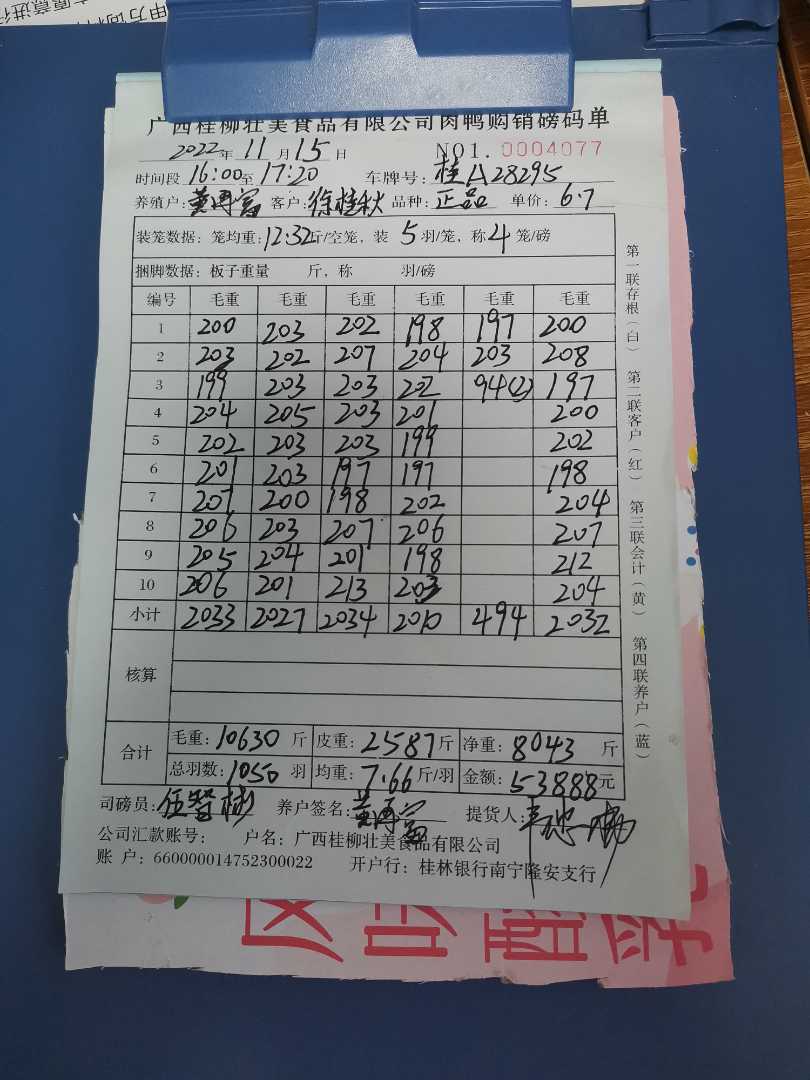 广西桂柳壮美食品有限公司肉鸭购销磅码单
2022年11月15日 NO1. 0004077
时间段 16:00至17:20 车牌号: 桂A28295
养殖户: 黄再富 客户: 徐桂秋 品种: 正品 单价: 6.7
装笼数据: 笼均重: 12.32斤/空笼, 装 5 羽/笼, 称 4 笼/磅
捆脚数据: 板子重量 斤, 称 羽/磅
编号 毛重 毛重 毛重 毛重 毛重 毛重
1 200 203 202 198 197 200
2 203 202 207 204 203 208
3 199 203 203 202 94(2) 197
4 204 205 203 201 200
5 202 203 203 199 202
6 201 203 197 197 198
7 207 200 198 202 204
8 206 203 207 206 207
9 205 204 201 198 212
10 206 201 213 203 204
小计 2033 2027 2034 2010 494 2032
核算
合计 毛重: 10630 斤 皮重: 2587斤 净重: 8043 斤
总羽数: 1050 羽 均重: 7.66斤/羽 金额: 53888元
司磅员: 伍智彬 养户签名: 黄再富 提货人:
公司汇款账号: 户名: 广西桂柳壮美食品有限公司
账 户: 660000014752300022 开户行: 桂林银行南宁隆安支行
第一联存根(白) 第二联客户(红) 第三联会计(黄) 第四联养户(蓝)